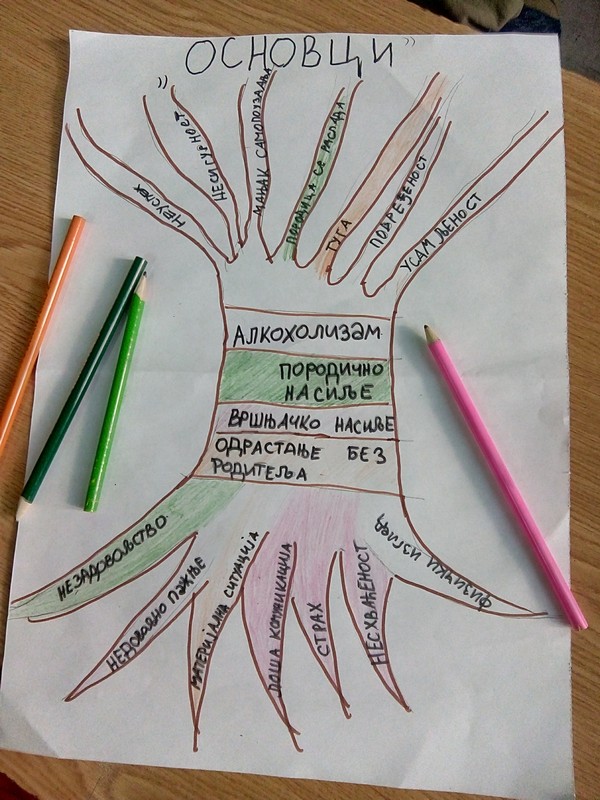 "ОСНОВЦИ"
НЕУСПЕХ
НЕСИГУРНОСТ
МАЊАК САМОПОУЗДАЊА
ПОРОДИЦА СА РАСПАДА
ТУГА
ПОВРЕЂЕНОСТ
УСАМЉЕНОСТ
АЛКОХОЛИЗАМ
ПОРОДИЧНО
НАСИЉЕ
ВРШЊАЧКО НАСИЉЕ
ОДРАСТАЊЕ БЕЗ
РОДИТЕЉА
НЕЗАДОВОЉСТВО
НЕДОВОЉНО ПАЖЊЕ
МАТЕРИЈАЛНА СИТУАЦИЈА
ЛОША КОМУНИКАЦИЈА
СТРАХ
НЕСХВАЋЕНОСТ
ФИЗИЧКИ ИЗГЛЕД